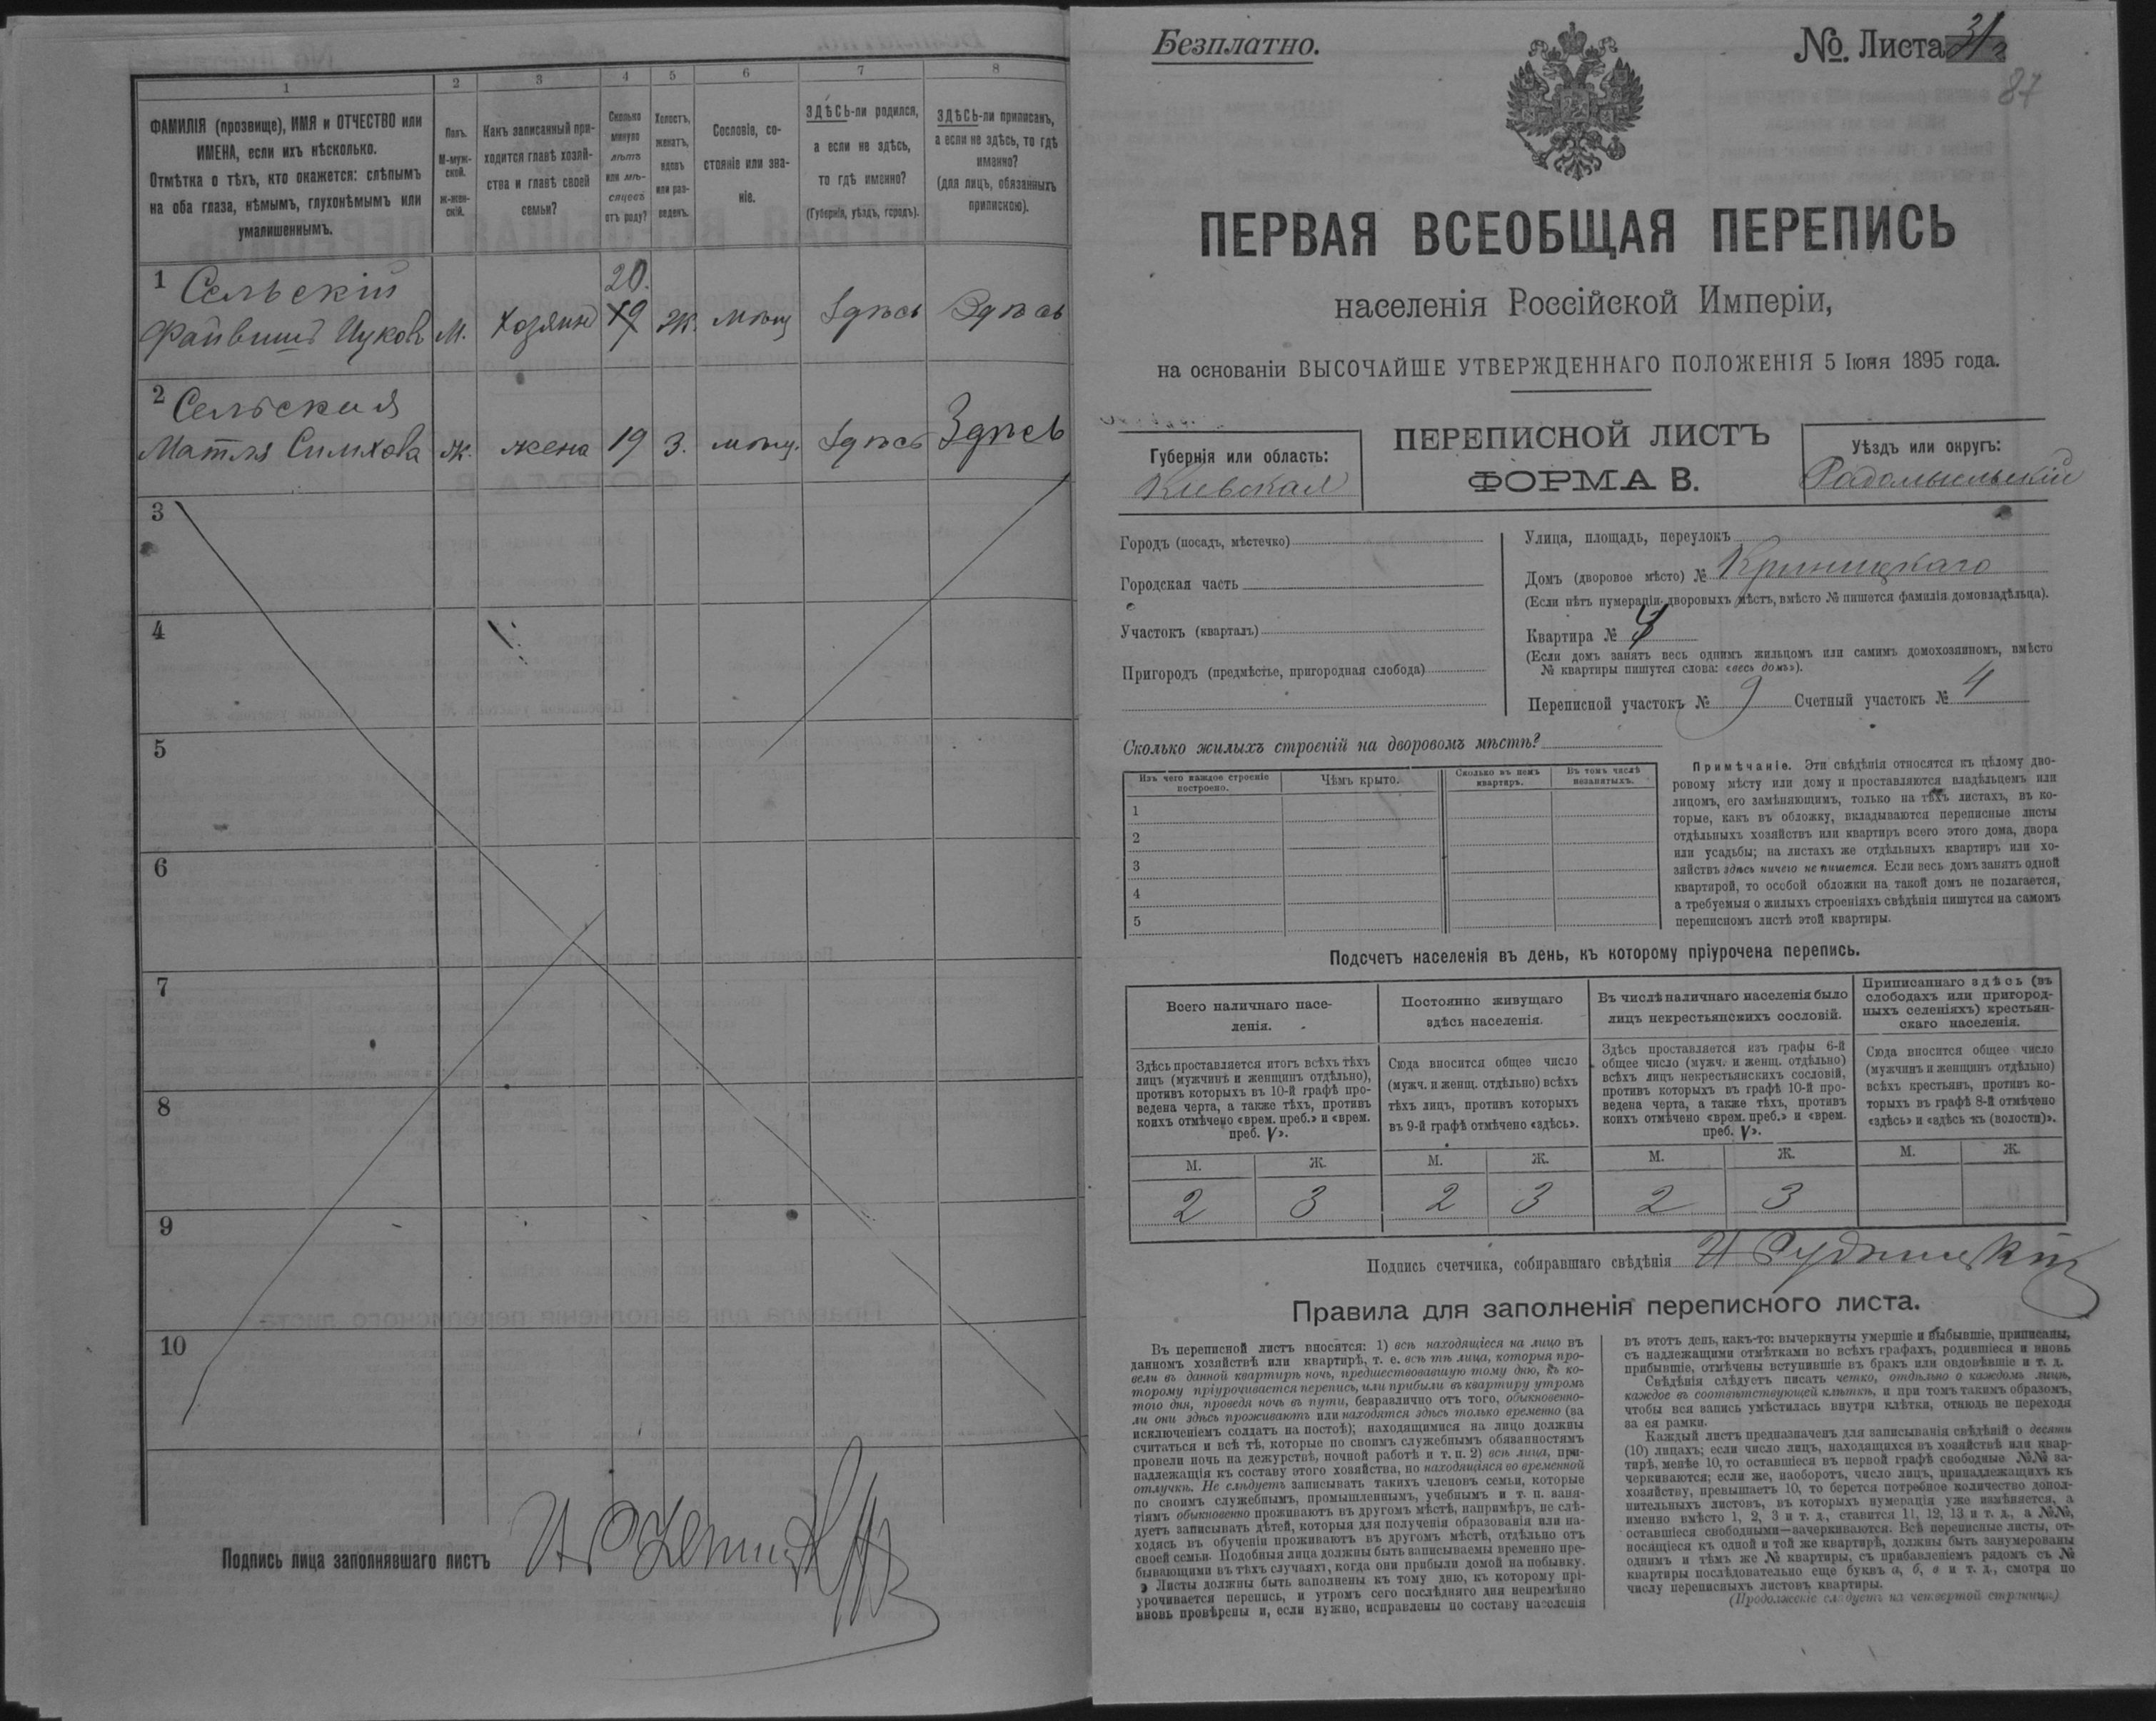 1 2 3 4 5 6 7 8
ФАМИЛІЯ (прозвище), ИМЯ и ОТЧЕСТВО или
ИМЕНА, если ихъ нѣсколько.
Отмѣтка о тѣхъ, кто окажется: слѣпымъ
на оба глаза, нѣмымъ, глухонѣмымъ или
умалишеннымъ.
Полъ.
М-муж-
ской.
Ж-жен-
скій.
Какъ записанный при-
ходится главѣ хозяй-
ства и главѣ своей
семьи?
Сколько
минуло
лѣтъ
или мѣ-
сяцевъ
отъ роду?
Холостъ,
женатъ,
вдовъ
или раз-
веденъ.
Сословіе, со-
стояніе или зва-
ніе.
ЗДѢСЬ-ли родился,
а если не здѣсь,
то гдѣ именно?
(Губернія, уѣздъ, городъ).
ЗДѢСЬ-ли приписанъ,
а если не здѣсь, то гдѣ
именно?
(для лицъ, обязанныхъ
припискою).
1 Сельскій 20.
Файвишъ Ицковъ М. Хозяинъ 19 Ж. мѣщ Здѣсь Здѣсь
2 Сельская
Матля Симхова Ж. жена 19 З. мѣщ. Здѣсь Здѣсь
3
4
5
6
7
8
9
10
Подпись лица заполнявшаго листъ
Безплатно.
№. Листа 31
87
ПЕРВАЯ ВСЕОБЩАЯ ПЕРЕПИСЬ
населенія Россійской Имперіи,
на основаніи ВЫСОЧАЙШЕ УТВЕРЖДЕННАГО ПОЛОЖЕНІЯ 5 Іюня 1895 года.
ПЕРЕПИСНОЙ ЛИСТЪ
ФОРМА В.
Губернія или область:
Кіевская
Уѣздъ или округъ:
Радомысльскій
Городъ (посадъ, мѣстечко)
Городская часть
Участокъ (кварталъ)
Пригородъ (предмѣстье, пригородная слобода)
Улица, площадь, переулокъ
Домъ (дворовое мѣсто) № Криницкаго
(Если нѣтъ нумераціи дворовыхъ мѣстъ, вмѣсто № пишется фамилія домовладѣльца).
Квартира №
(Если домъ занятъ весь однимъ жильцомъ или самимъ домохозяиномъ, вмѣсто
№ квартиры пишутся слова: «весь домъ»).
Переписной участокъ № 9 Счетный участокъ № 4
Сколько жилыхъ строеній на дворовомъ мѣстѣ?
Изъ чего каждое строеніе
построено.
Чѣмъ крыто.
Сколько въ немъ
квартиръ.
Въ томъ числѣ
незанятыхъ.
1
2
3
4
5
Примѣчаніе. Эти свѣдѣнія относятся къ цѣлому дво-
ровому мѣсту или дому и проставляются владѣльцемъ или
лицомъ, его замѣняющимъ, только на тѣхъ листахъ, въ ко-
торые, какъ въ обложку, вкладываются переписные листы
отдѣльныхъ хозяйствъ или квартиръ всего этого дома, двора
или усадьбы; на листахъ же отдѣльныхъ квартиръ или хо-
зяйствъ здѣсь ничего не пишется. Если весь домъ занятъ одной
квартирой, то особой обложки на такой домъ не полагается,
а требуемыя о жилыхъ строеніяхъ свѣдѣнія пишутся на самомъ
переписномъ листѣ этой квартиры.
Подсчетъ населенія въ день, къ которому пріурочена перепись.
Всего наличнаго насе-
ленія.
Постоянно живущаго
здѣсь населенія.
Въ числѣ наличнаго населенія было
лицъ некрестьянскихъ сословій.
Приписаннаго здѣсь (въ
слободахъ или пригород-
ныхъ селеніяхъ) крестьян-
скаго населенія.
Здѣсь проставляется итогъ всѣхъ тѣхъ
лицъ (мужчинъ и женщинъ отдѣльно),
противъ которыхъ въ 10-й графѣ про-
ведена черта, а также тѣхъ, противъ
коихъ отмѣчено «врем. преб.» и «врем.
преб. V».
Сюда вносится общее число
(мужч. и женщ. отдѣльно) всѣхъ
тѣхъ лицъ, противъ которыхъ
въ 9-й графѣ отмѣчено «здѣсь».
Здѣсь проставляется изъ графы 6-й
общее число (мужч. и женщ. отдѣльно)
всѣхъ лицъ некрестьянскихъ сословій,
противъ которыхъ въ графѣ 10-й про-
ведена черта, а также тѣхъ, противъ
коихъ отмѣчено «врем. преб.» и «врем.
преб. V».
Сюда вносится общее число
(мужчинъ и женщинъ отдѣльно)
всѣхъ крестьянъ, противъ ко-
торыхъ въ графѣ 8-й отмѣчено
«здѣсь» и «здѣсь къ (волости)».
М. Ж. М. Ж. М. Ж. М. Ж.
2 3 2 3 2 3
Подпись счетчика, собиравшаго свѣдѣнія
Правила для заполненія переписного листа.
Въ переписной листъ вносятся: 1) всѣ находящіеся на лицо въ
данномъ хозяйствѣ или квартирѣ, т. е. всѣ тѣ лица, которыя про-
вели въ данной квартирѣ ночь, предшествовавшую тому дню, къ ко-
торому пріурочивается перепись, или прибыли въ квартиру утромъ
того дня, проведя ночь въ пути, безразлично отъ того, обыкновенно-
ли они здѣсь проживаютъ или находятся здѣсь только временно (за
исключеніемъ солдатъ на постоѣ); находящимися на лицо должны
считаться и всѣ тѣ, которые по своимъ служебнымъ обязанностямъ
провели ночь на дежурствѣ, ночной работѣ и т. п. 2) всѣ лица, при-
надлежащія къ составу этого хозяйства, но находящіяся во временной
отлучкѣ. Не слѣдуетъ записывать такихъ членовъ семьи, которые
по своимъ служебнымъ, промышленнымъ, учебнымъ и т. п. заня-
тіямъ обыкновенно проживаютъ въ другомъ мѣстѣ, напримѣръ, не слѣ-
дуетъ записывать дѣтей, которыя для полученія образованія или на-
ходясь въ обученіи проживаютъ въ другомъ мѣстѣ, отдѣльно отъ
своей семьи. Подобныя лица должны быть записываемы временно пре-
бывающими въ тѣхъ случаяхъ, когда они прибыли домой на побывку.
Листы должны быть заполнены къ тому дню, къ которому прі-
урочивается перепись, и утромъ сего послѣдняго дня непремѣнно
вновь провѣрены и, если нужно, исправлены по составу населенія
въ этотъ день, какъ-то: вычеркнуты умершіе и выбывшіе, приписаны,
съ надлежащими отмѣтками во всѣхъ графахъ, родившіеся и вновь
прибывшіе, отмѣчены вступившіе въ бракъ или овдовѣвшіе и т. д.
Свѣдѣнія слѣдуетъ писать четко, отдѣльно о каждомъ лицѣ,
каждое въ соотвѣтствующей клѣткѣ, и при томъ такимъ образомъ,
чтобы вся запись умѣстилась внутри клѣтки, отнюдь не переходя
за ея рамки.
Каждый листъ предназначенъ для записыванія свѣдѣній о десяти
(10) лицахъ; если число лицъ, находящихся въ хозяйствѣ или квар-
тирѣ, менѣе 10, то оставшіеся въ первой графѣ свободные №№ за-
черкиваются; если же, наоборотъ, число лицъ, принадлежащихъ къ
хозяйству, превышаетъ 10, то берется потребное количество допол-
нительныхъ листовъ, въ которыхъ нумерація уже измѣняется, а
именно вмѣсто 1, 2, 3 и т. д., ставится 11, 12, 13 и т. д., а №№,
оставшіеся свободными—зачеркиваются. Всѣ переписные листы, от-
носящіеся къ одной и той же квартирѣ, должны быть занумерованы
однимъ и тѣмъ же № квартиры, съ прибавленіемъ рядомъ съ №
квартиры послѣдовательно еще буквъ а, б, в и т. д., смотря по
числу переписныхъ листовъ квартиры.
(Продолженіе слѣдуетъ на четвертой страницѣ)